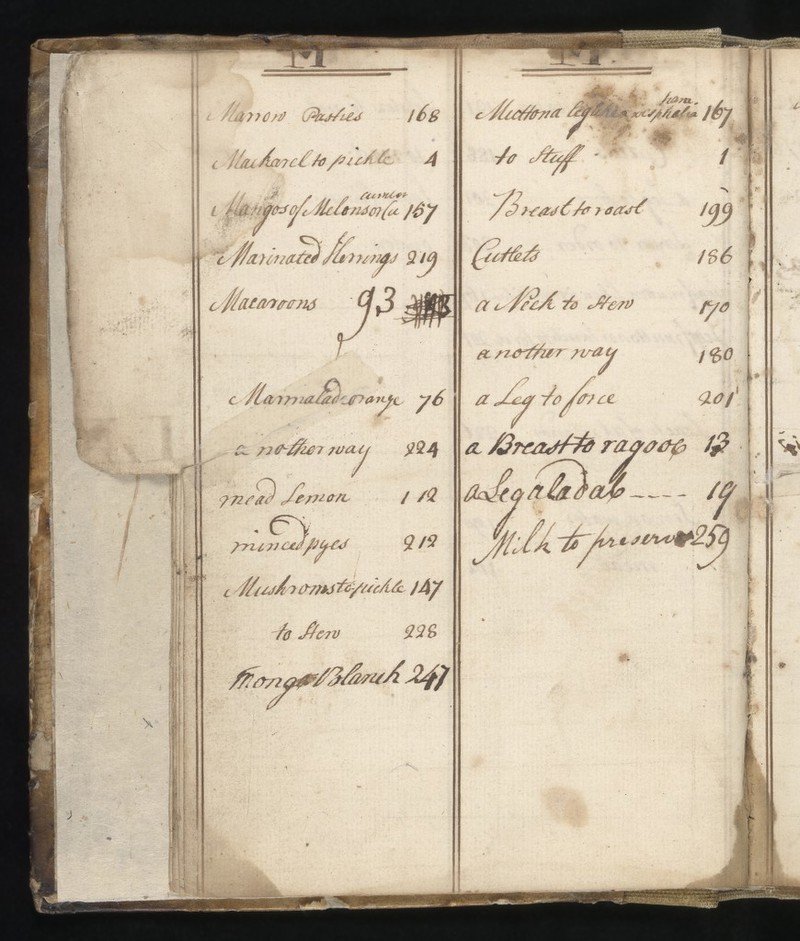 M
Marrow Pasties 168
Mackarel to pickle 4
Mangos of Melons or Cu cumer 157
Marinated Herrings 219
Macaroons 93
Marmalade orange 76
a nother way 224
mead Lemon 112
minced pyes 212
Mushroms to pickle 147
to Stew 228
mong Blanch 247
M
Muttona leg like a wesphalia ham 167
to Stuff 1
Breast to roast 199
Cutlets 186
a Neck to Stew 170
another way 180
a Leg to force 201
a Breast to ragoo 13
a Leg aladab ---- 19
Milk to preserve 259